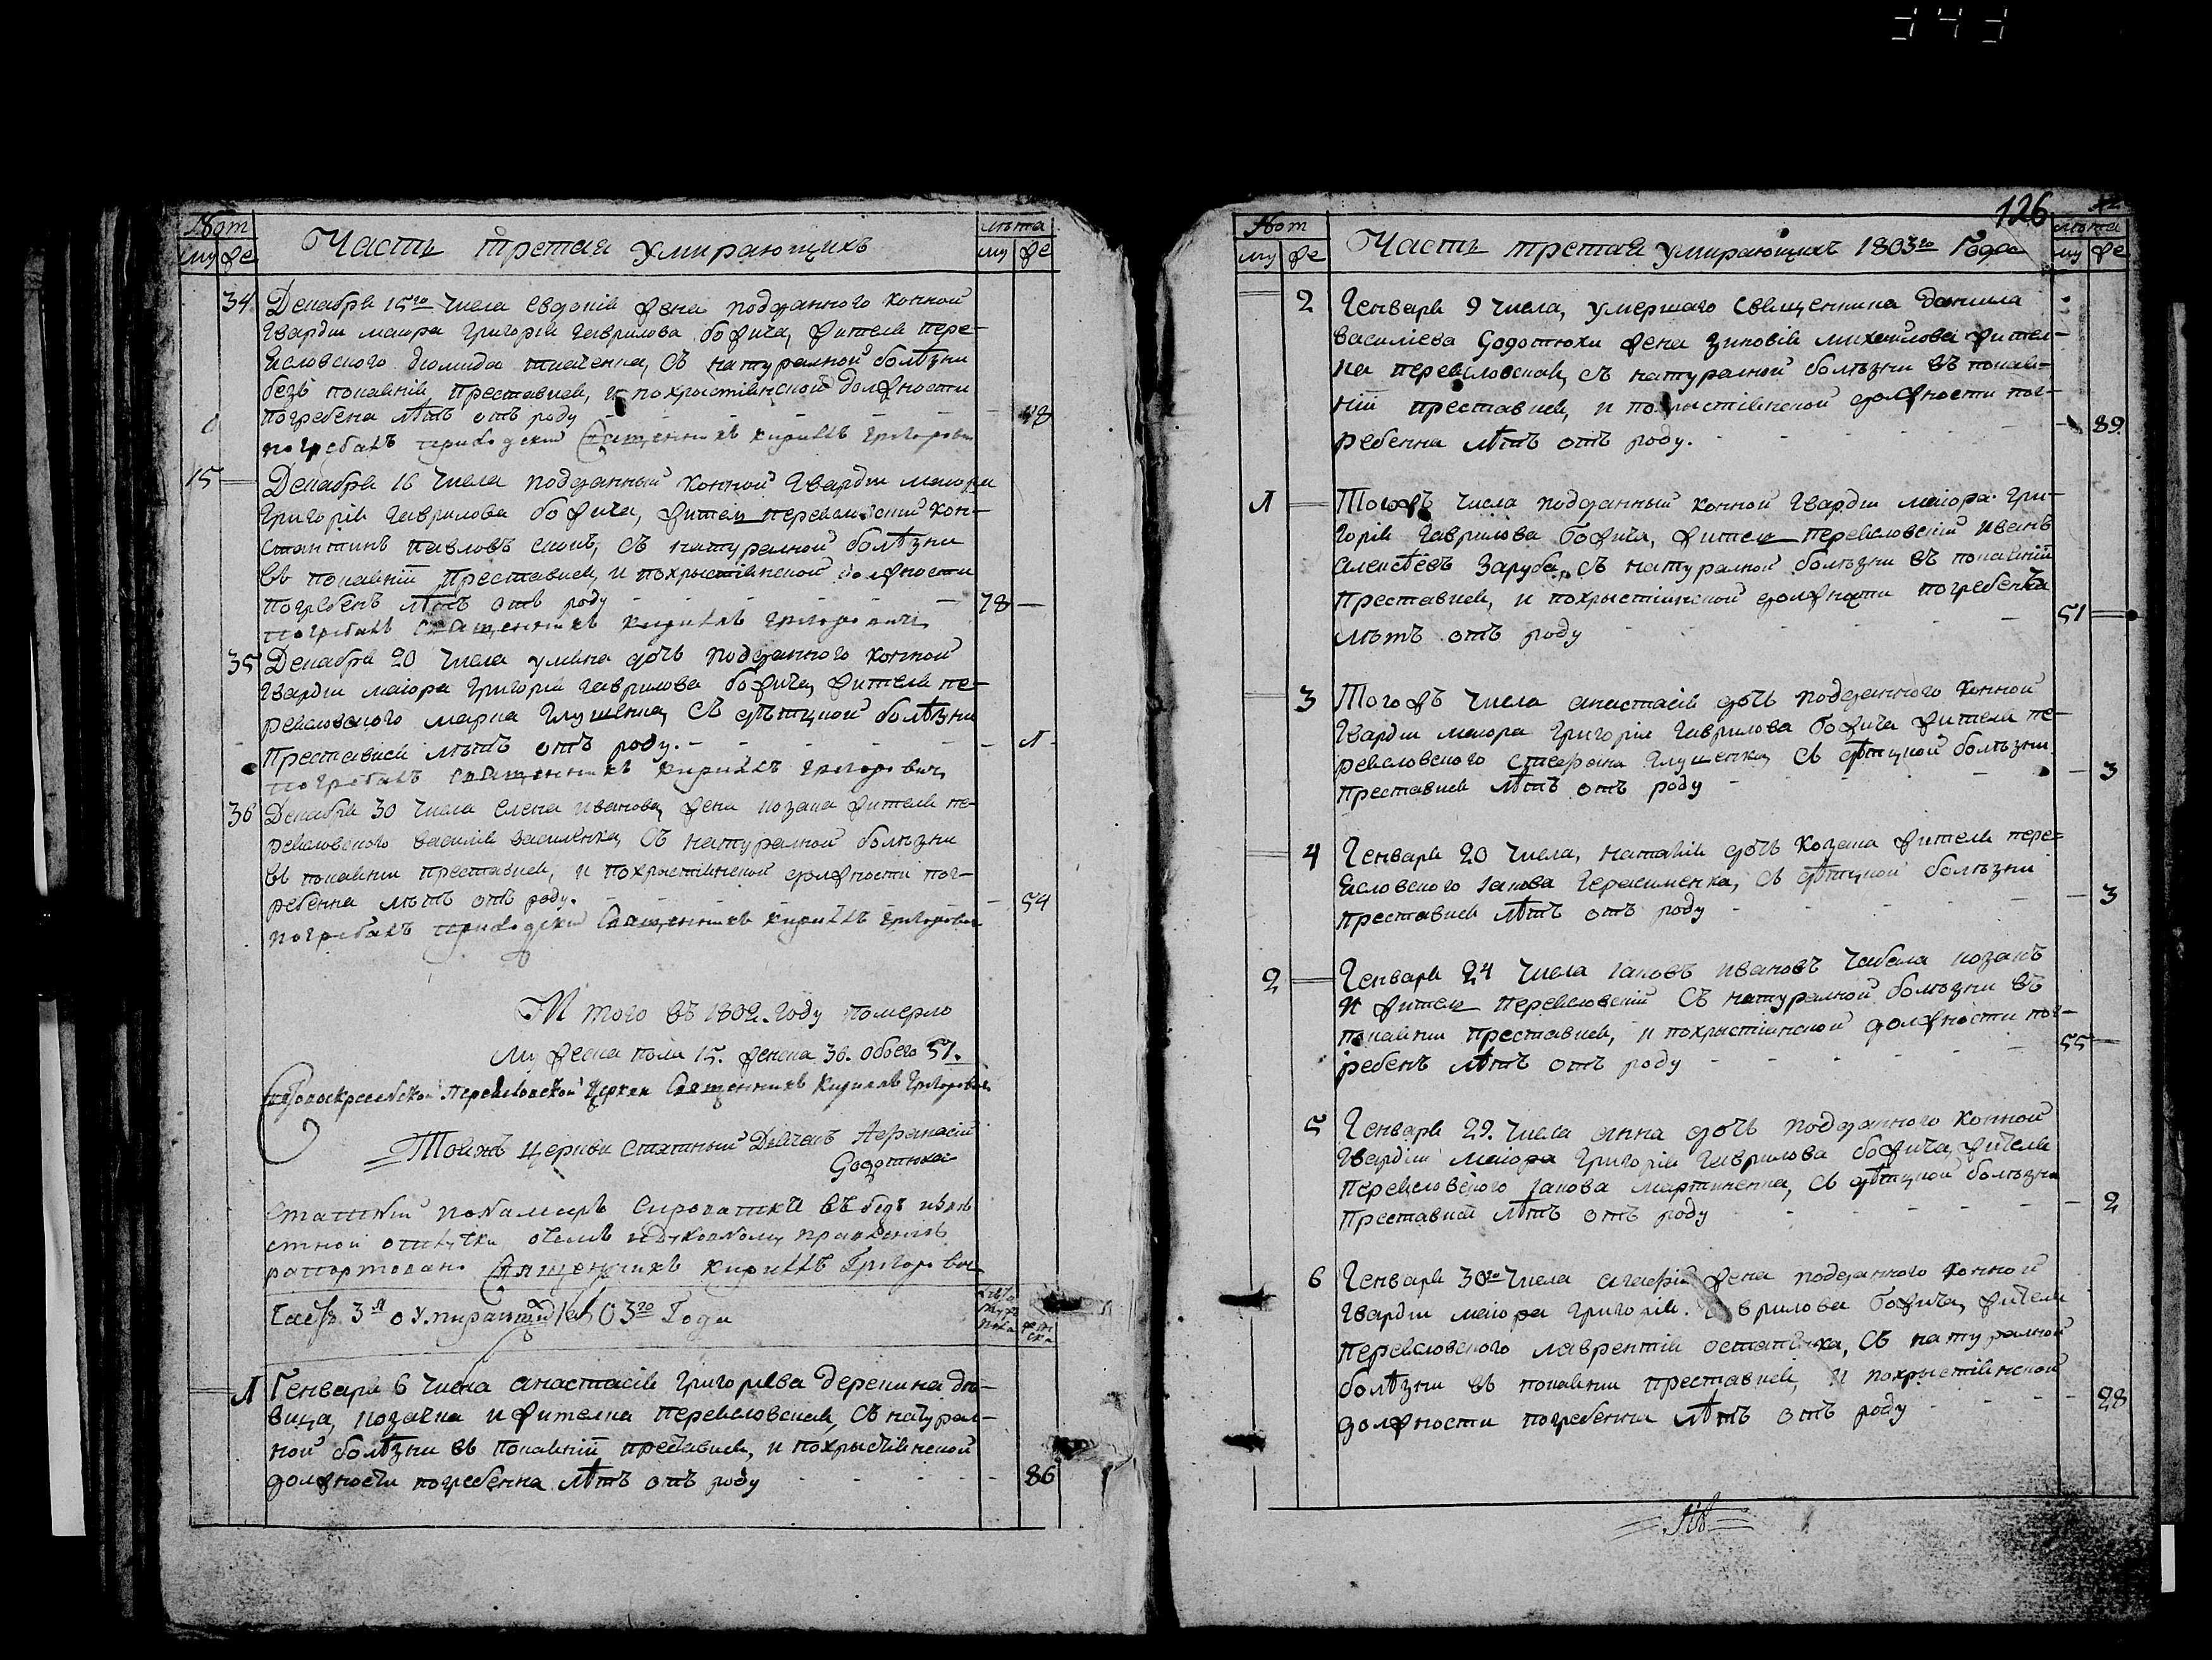 343
№ от
му фе
Часть третая Умирающихъ
лѣта
му же
34 Декабря 15го числа Евдокія жена подданного конной
Гвардіи маиора Григорія Гаврилова божича, жителя пере-
яСловского діомида ткаченка, Съ натуралной болѣзни
безъ покаянія Преставися, и похрыстіянской должности
погребена лѣтъ отъ роду 48
погребалъ приходскій Священникъ Кириллъ Григорович
15 Декабря 16 числа подданный Конной Гвардіи маиора
Григорія Гаврилова божича, житель переяславскій Кон-
стантинъ павловъ скокъ, съ натуралной болѣзни
въ покаяніи Преставися, и похрыстіянской должности
погребенъ лѣтъ отъ роду 78
погребалъ Священникъ Кириллъ Григорович
35 Декабря 20 числа уліяна дочь подданного Конной
Гвардіи маіора Григорія Гаврилова божича, жителя пе-
реясловского марка Глущенка, Съ дѣтцкой болѣзни
Преставися лѣтъ отъ роду 1
погребалъ Священникъ Кириллъ Григорович
36 Декабря 30 числа Елена Иванова, жена козака жителя пе-
реясловского василія василенка, Съ натуралной болѣзни
въ покаянии преставися, и похрыстіянской должности пог-
ребенна лѣтъ отъ роду. 54
погребалъ приходскій Священникъ Кириллъ Григорович
И того въ 1802. году померло
мужеска пола 15. женска 36. обоего 51.
Воскресенской Переяловской Церкви Священникъ Кириллъ Григорович
Тояжъ церкви Статный Дьячекъ Афанасій
Годотюка
рапортовано Священникъ Кириллъ Григорович
Часть 3я о Умирающихъ 1803го Года
1 Генваря 6 числа анастасія Григорієва Дерекина дѣ-
вица, козачка и жителка Переясловская, Съ натурал-
ной болѣзни въ покаяніи преставися, и похрыстіянской
должности погребенна лѣтъ отъ роду 86
126
№ от
му фе
Часть третая умирающихъ 1803го Года
лѣта
му же
2 Генваря 9 числа, умершаго Священника Данила
Василіева Годотюхи жена Зиновія михайлова жител-
ка переясловская, съ натуралной болѣзни въ покая-
нии преставися, и похрыстіянской должности пог-
ребенна лѣтъ отъ роду. 89
1 Тогожъ числа подданный конной Гвардіи маіора Гри-
горія Гаврилова Божича, житель переясловскій Иванъ
Алексѣевъ Заруба, съ натуралной болѣзни въ покаяніи
Преставися, и похрыстіянской должности погребенъ
лѣтъ отъ роду 51
3 Тогожъ числа анастасія дочь подданного Конной
Гвардіи маіора Григорія Гаврилова Божича жителя пе-
реясловского Стефана Глущенка, Съ дѣтцкой болѣзни
преставися лѣтъ отъ роду 3
4 Генваря 20 числа, наталія дочь Козака жителя пере-
ясловского Іакова Герасименка, съ дѣтцкой болѣзни
преставися лѣтъ отъ роду 3
2 Генваря 24 числа Іаковъ Ивановъ Чабала козакъ
и житель переясловскій Съ натуралной болѣзни въ
покаянии преставися, и похрыстіянской должности пог-
ребенъ лѣтъ отъ роду 55
5 Генваря 29. числа Анна дочь подданного Конной
Гвардіи маіора Григорія Гаврилова божича, жителя
Переясловского Іакова мартиненка, Съ дѣтцкой болѣзни
Преставися лѣтъ отъ роду 2
6 Генваря 30го числа агафія жена подданного конной
Гвардіи маіора Григорія Гаврилова Божича, жителя
переясловского лаврентія остапенка, Съ натуралной
болѣзни въ покаянии преставися, и похрыстіянской
должности погребенна лѣтъ отъ роду 28